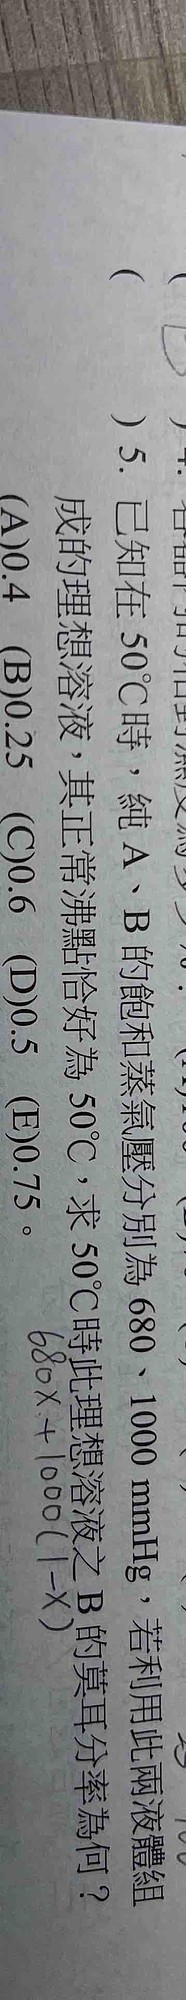 ( ) 5. 已知在 50℃時，純 A、B 的飽和蒸氣壓分別為 680、1000 mmHg，若利用此兩液體組
成的理想溶液，其正常沸點恰好為 50℃，求 50℃時此理想溶液之 B 的莫耳分率為何？
(A)0.4 (B)0.25 (C)0.6 (D)0.5 (E)0.75。
680X+1000(1-X)